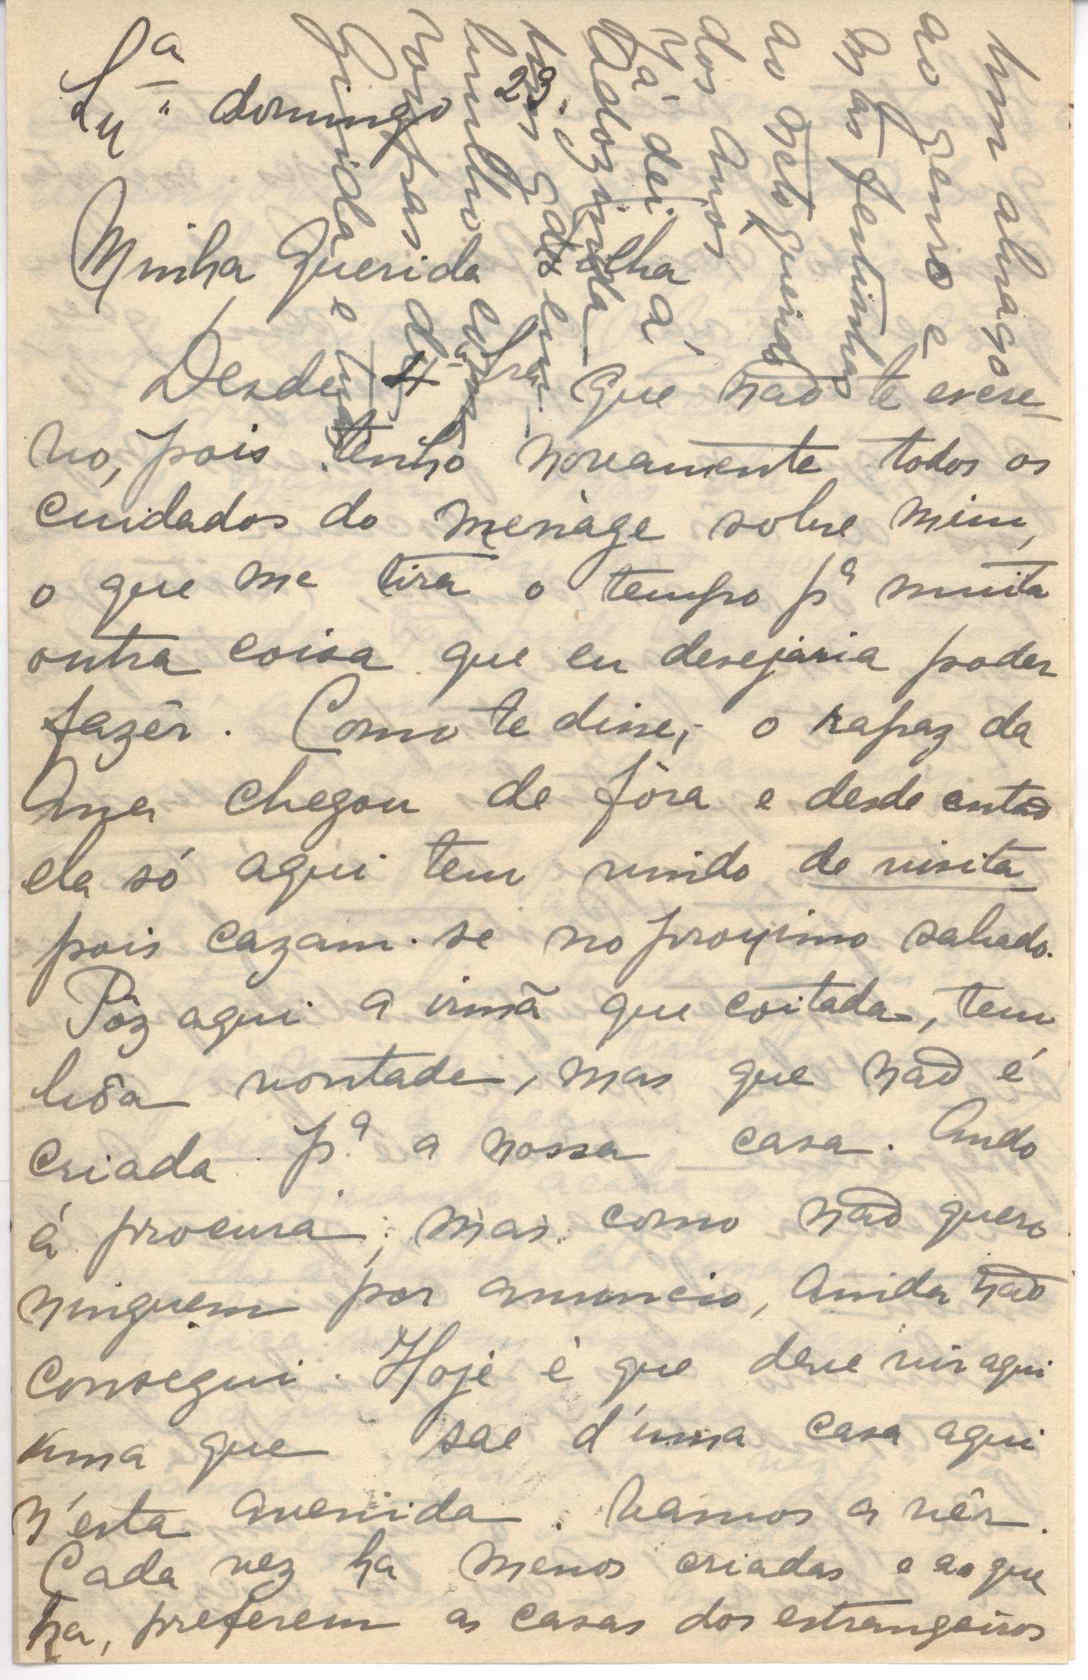 Lxª domingo 23.
Minha Querida Filha
Desde 4ª fra que não te escre-
vo, pois tenho novamente todos os
cuidados do menàge sobre mim,
o que me tira o tempo pª muita
outra coisa que eu desejaria poder
fazêr. Como te disse, o rapaz da
chegou de fóra e desde então
ela só aqui tem vindo de visita
pois cazam-se no proximo sabado.
Pôz aqui a irmã que coitada, tem
bôa vontade, mas que não é
criada pª a nossa casa. Ando
á procura, mas como não quero
ninguem por anuncio, ainda não
consegui. Hoje é que deve vir aqui
uma que sae d'uma casa aqui
n'esta avenida. Vamos a vêr.
Cada vez ha menos criadas e as que
ha, preferem as casas dos estrangeiros
Um abraço
ao genro e
festinhas
ao neto querido
dos Avós
Já dei á
Adozinda
embrulho com
roupas da